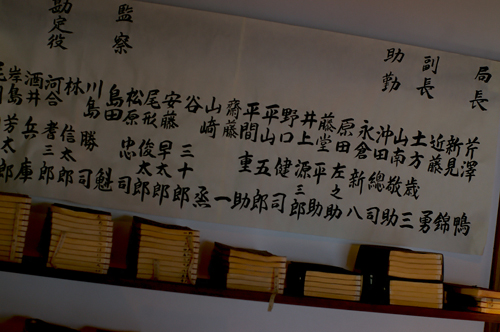 局長
芹澤鴨
新見錦
近藤勇
副長
土方歳三
山南敬助
助勤
沖田總司
永倉新八
原田左之助
藤堂平助
井上源三郎
野口健司
平山五郎
平間重助
齋藤一
山崎烝
谷三十郎
安藤早太郎
尾形俊太郎
松原忠司
監察
島田魁
川島勝司
林信太郎
河合耆三郎
勘定役
酒井兵庫
岸島芳太郎